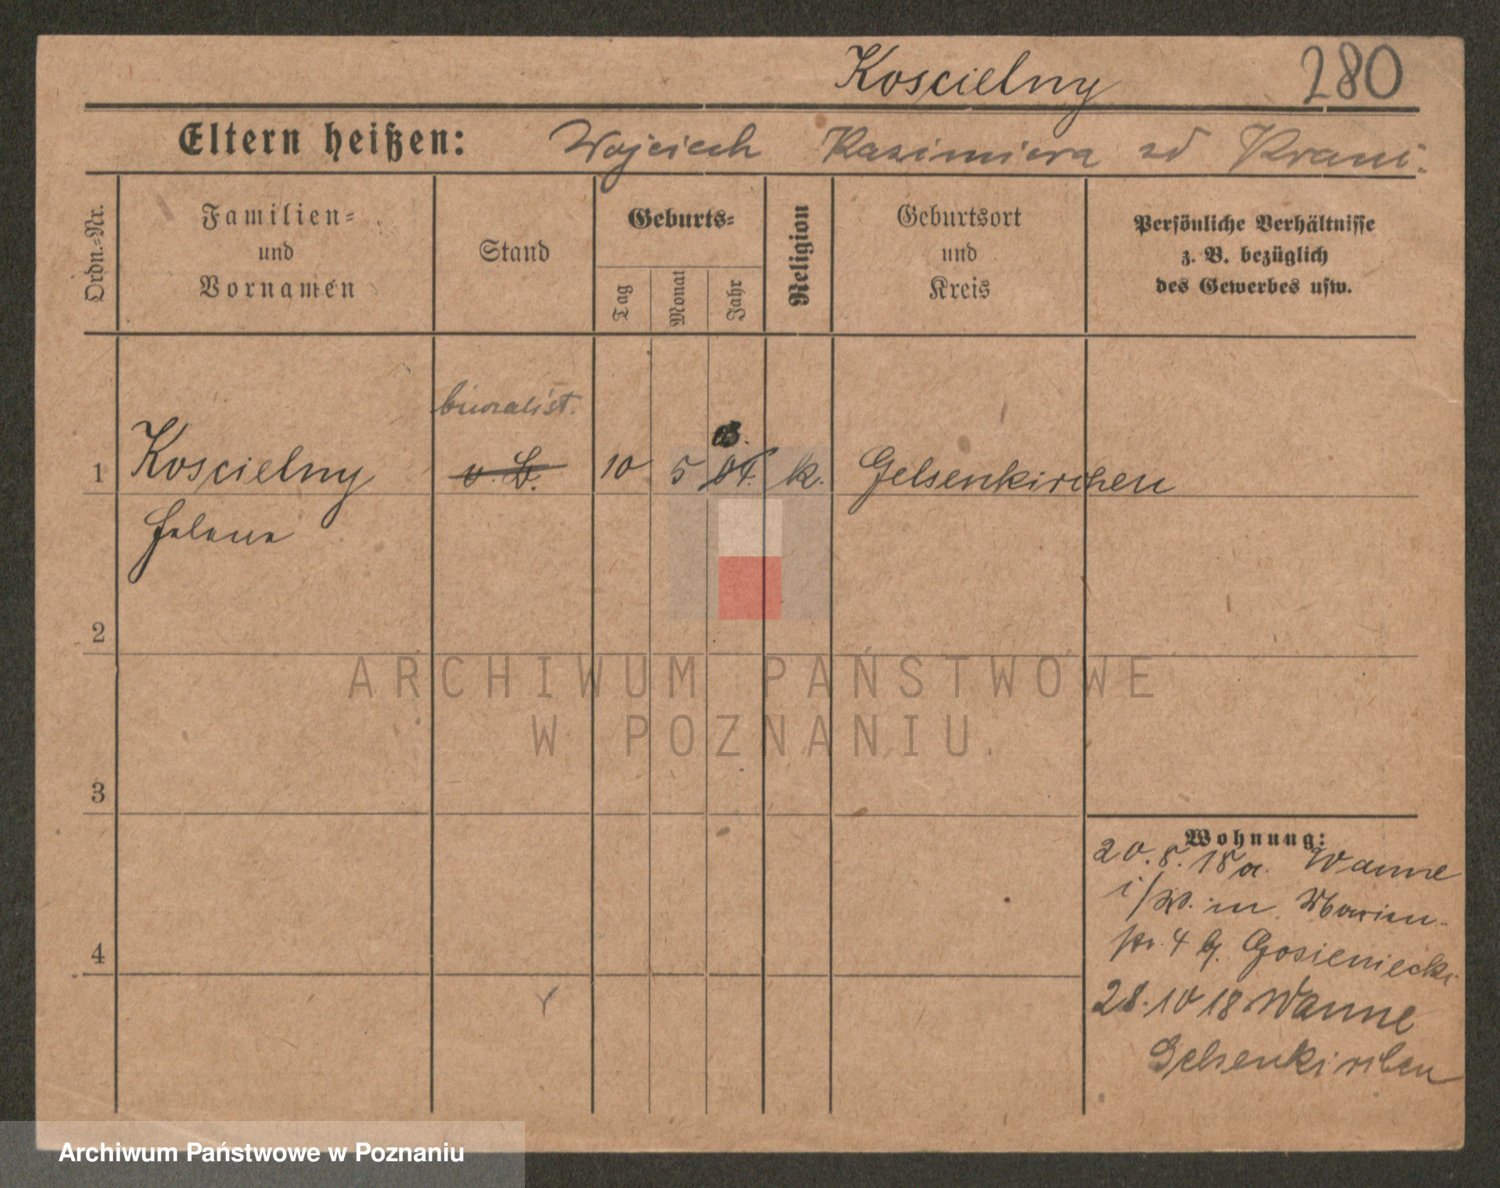 Koscielny 280
Eltern heißen: Wojciech Kazimiera zd Krani
Ordn.-Nr.
Familien-
und
Vornamen
Stand
Geburts-
Tag
Monat
Jahr
Religion
Geburtsort
und
Kreis
Persönliche Verhältnisse
z. B. bezüglich
des Gewerbes usw.
biuralist.
03.
1 Koscielny o. B. 10 5 04. k. Gelsenkirchen
Helena
2
ARCHIWUM PAŃSTWOWE
W POZNANIU.
3
Wohnung:
20.8.18 a. Wanne
i/W. Marien-
str. 4 b. Gosieniecki
4
28.10 18 Wanne
Gelsenkirchen
Archiwum Państwowe w Poznaniu